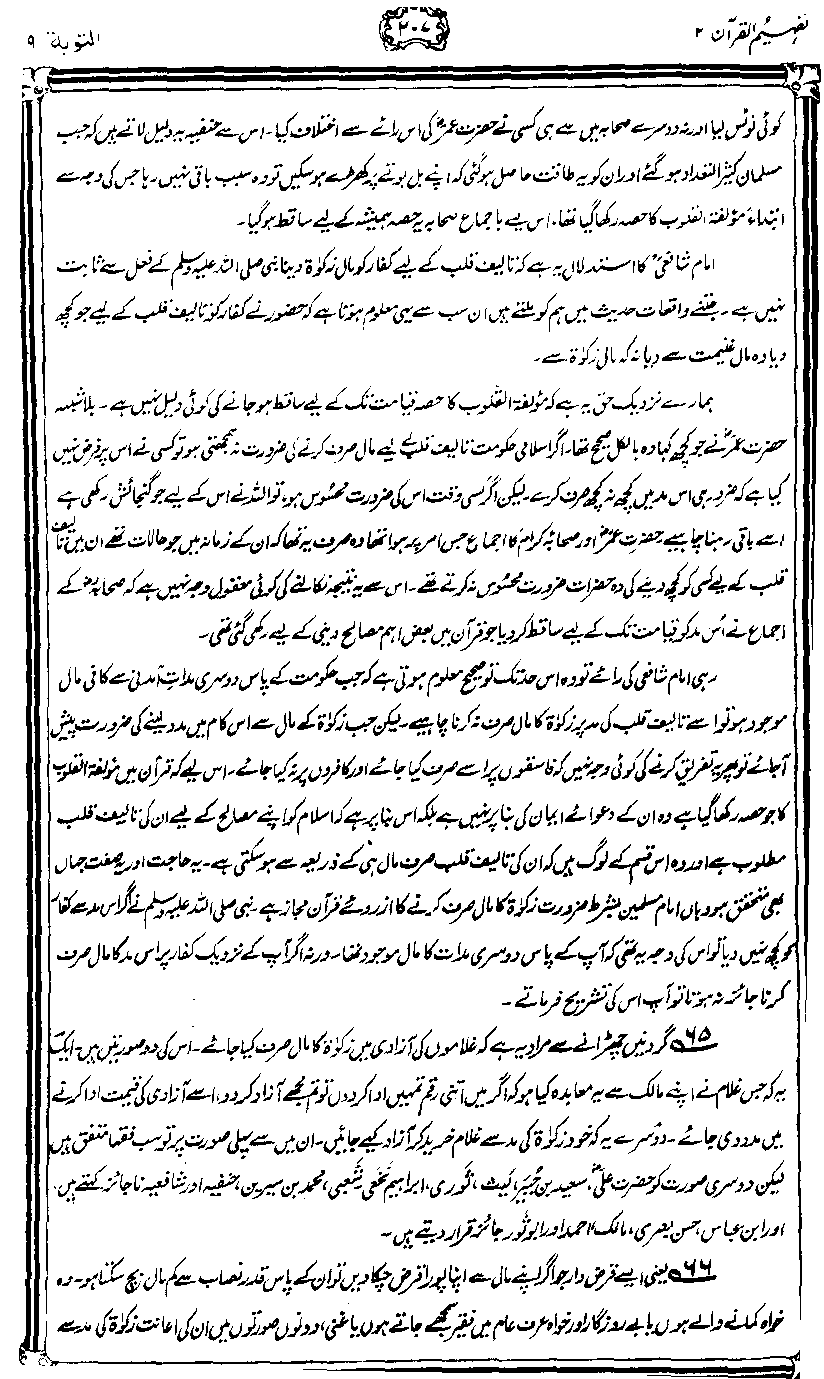 تفہیم القرآن ۲
۲۰۷
التوبة ۹
کوئی نوٹس لیا اور نہ دوسرے صحابہ میں سے ہی کسی نے حضرت عمرؓ کی اس رائے سے اختلاف کیا۔ اس سے حنفیہ یہ دلیل لاتے ہیں کہ جب
مسلمان کثیر التعداد ہو گئے اور ان کو یہ طاقت حاصل ہو گئی کہ اپنے بل بوتے پر کھڑے ہو سکیں تو وہ سبب باقی نہیں رہا جس کی وجہ سے
ابتداءً مؤلفۃ القلوب کا حصہ رکھا گیا تھا۔ اس لیے باجماع صحابہ یہ حصہ ہمیشہ کے لیے ساقط ہو گیا۔
امام شافعیؒ کا استدلال یہ ہے کہ تالیف قلب کے لیے کفار کو مال زکوٰۃ دینا نبی صلی اللہ علیہ وسلم کے فعل سے ثابت
نہیں ہے۔ جتنے واقعات حدیث میں ہم کو ملتے ہیں ان سب سے یہی معلوم ہوتا ہے کہ حضور نے کفار کو تالیف قلب کے لیے جو کچھ
دیا وہ مال غنیمت سے دیا نہ کہ مال زکوٰۃ سے۔
ہمارے نزدیک حق یہ ہے کہ مؤلفۃ القلوب کا حصہ قیامت تک کے لیے ساقط ہو جانے کی کوئی دلیل نہیں ہے۔ بلاشبہ
حضرت عمرؓ نے جو کچھ کہا وہ بالکل صحیح تھا۔ اگر اسلامی حکومت تالیف قلب کے لیے مال صرف کرنے کی ضرورت نہ سمجھتی ہو تو کسی نے اس پر فرض نہیں
کیا ہے کہ ضرور ہی اس مد میں کچھ نہ کچھ صرف کرے۔ لیکن اگر کسی وقت اس کی ضرورت محسوس ہو تو اللہ نے اس کے لیے جو گنجائش رکھی ہے
اسے باقی رہنا چاہیے۔ حضرت عمرؓ اور صحابۂ کرامؓ کا اجماع جس امر پر ہوا تھا وہ صرف یہ تھا کہ ان کے زمانہ میں جو حالات تھے ان میں تالیف
قلب کے لیے کسی کو کچھ دینے کی وہ حضرات ضرورت محسوس نہ کرتے تھے۔ اس سے یہ نتیجہ نکالنے کی کوئی معقول وجہ نہیں ہے کہ صحابہؓ کے
اجماع نے اُس مد کو قیامت تک کے لیے ساقط کر دیا جو قرآن میں بعض اہم مصالح دینی کے لیے رکھی گئی تھی۔
رہی امام شافعی کی رائے تو وہ اس حد تک تو صحیح معلوم ہوتی ہے کہ جب حکومت کے پاس دوسری مدات آمدنی سے کافی مال
موجود ہو تو اسے تالیف قلب کی مد پر زکوٰۃ کا مال صرف نہ کرنا چاہیے۔ لیکن جب زکوٰۃ کے مال سے اس کام میں مدد لینے کی ضرورت پیش
آجائے تو پھر یہ تفریق کرنے کی کوئی وجہ نہیں کہ فاسقوں پر اسے صرف کیا جائے اور کافروں پر نہ کیا جائے۔ اس لیے کہ قرآن میں مؤلفۃ القلوب
کا جو حصہ رکھا گیا ہے وہ ان کے دعوائے ایمان کی بنا پر نہیں ہے بلکہ اس بنا پر ہے کہ اسلام کو اپنے مصالح کے لیے ان کی تالیف قلب
مطلوب ہے اور وہ اس قسم کے لوگ ہیں کہ ان کی تالیف قلب صرف مال ہی کے ذریعہ سے ہو سکتی ہے۔ یہ حاجت اور یہ صفت جہاں
بھی متحقق ہو وہاں امام مسلمین بشرط ضرورت زکوٰۃ کا مال صرف کرنے کا ازروئے قرآن مجاز ہے۔ نبی صلی اللہ علیہ وسلم نے اگر اس مد سے کفار
کو کچھ نہیں دیا تو اس کی وجہ یہ تھی کہ آپ کے پاس دوسری مدات کا مال موجود تھا۔ ورنہ اگر آپ کے نزدیک کفار پر اس مد کا مال صرف
کرنا جائز نہ ہوتا تو آپ اس کی تشریح فرماتے۔
۶۵ گردنیں چھڑانے سے مراد یہ ہے کہ غلاموں کی آزادی میں زکوٰۃ کا مال صرف کیا جائے۔ اس کی دو صورتیں ہیں۔ ایک
یہ کہ جس غلام نے اپنے مالک سے یہ معاہدہ کیا ہو کہ اگر میں اتنی رقم تمہیں ادا کر دوں تو تم مجھے آزاد کر دو، اسے آزادی کی قیمت ادا کرنے
میں مدد دی جائے۔ دوسرے یہ کہ خود زکوٰۃ کی مد سے غلام خرید کر آزاد کیے جائیں۔ ان میں سے پہلی صورت پر تو سب فقہا متفق ہیں
لیکن دوسری صورت کو حضرت علیؓ، سعید بن جُبیر، لیث، ثوری، ابراہیم نخعی، شعبی، محمد بن سیرین، حنفیہ اور شافعیہ ناجائز کہتے ہیں۔
اور ابن عباس، حسن بصری، مالک، احمد اور ابو ثور جائز قرار دیتے ہیں۔
۶۶ یعنی ایسے قرض دار جو اگر اپنے مال سے اپنا پورا قرض چکا دیں تو ان کے پاس قدر نصاب سے کم مال بچ سکتا ہو۔ وہ
خواہ کمانے والے ہوں یا بے روزگار اور خواہ عرف عام میں فقیر سمجھے جاتے ہوں یا غنی، دونوں صورتوں میں ان کی اعانت زکوٰۃ کی مد سے